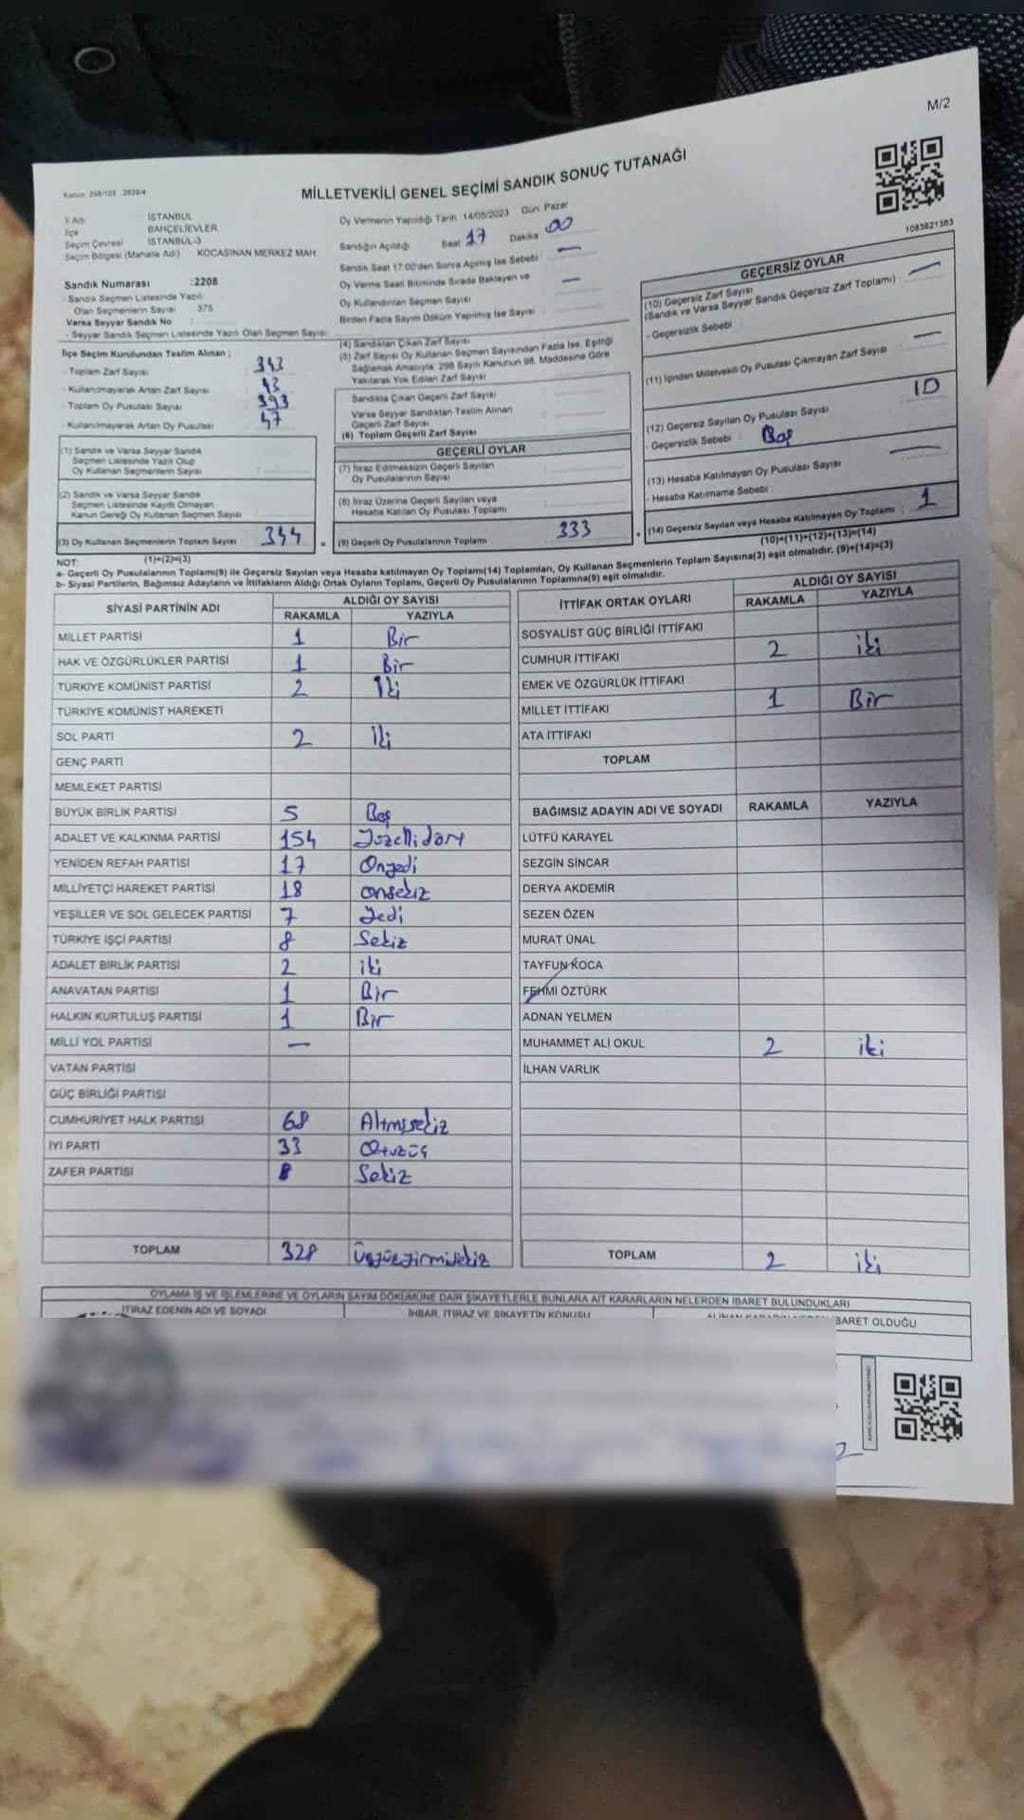 M/2
MİLLETVEKİLİ GENEL SEÇİMİ SANDIK SONUÇ TUTANAĞI
1083821383
İl Adı İSTANBUL
İlçe BAHÇELİEVLER
Seçim Çevresi İSTANBUL-3
Seçim Bölgesi (Mahalle Adı) KOCASİNAN MERKEZ MAH
Sandık Numarası :2208
Sandık Seçmen Listesinde Yazılı
Olan Seçmenlerin Sayısı 375
Varsa Seyyar Sandık No
- Seyyar Sandık Seçmen Listesinde Yazılı Olan Seçmen Sayısı
Oy Vermenin Yapıldığı Tarih 14/05/2023 Gün: Pazar
Sandığın Açıldığı Saat 17 Dakika 00
Sandık Saat 17:00'den Sonra Açılmış İse Sebebi —
Oy Verme Saati Bitiminde Sırada Bekleyen ve —
Oy Kullandırılan Seçmen Sayısı
Birden Fazla Sayım Döküm Yapılmış İse Sayısı
İlçe Seçim Kurulundan Teslim Alınan :
- Toplam Zarf Sayısı
- Kullanılmayarak Artan Zarf Sayısı
- Toplam Oy Pusulası Sayısı 393
- Kullanılmayarak Artan Oy Pusulası 47
(1) Sandık ve Varsa Seyyar Sandık
Seçmen Listesinde Yazılı Olup
Oy Kullanan Seçmenlerin Sayısı
(2) Sandık ve Varsa Seyyar Sandık
Seçmen Listesinde Kayıtlı Olmayan
Kanun Gereği Oy Kullanan Seçmen Sayısı
(3) Oy Kullanan Seçmenlerin Toplam Sayısı 344
(1)+(2)=(3)
(4) Sandıktan Çıkan Zarf Sayısı
(5) Zarf Sayısı Oy Kullanan Seçmen Sayısından Fazla İse, Eşitliği
Sağlamak Amacıyla; 298 Sayılı Kanunun 98. Maddesine Göre
Yakılarak Yok Edilen Zarf Sayısı
Sandıkta Çıkan Geçerli Zarf Sayısı
Varsa Seyyar Sandıktan Teslim Alınan
Geçerli Zarf Sayısı
(6) Toplam Geçerli Zarf Sayısı
GEÇERLİ OYLAR
(7) İtiraz Edilmeksizin Geçerli Sayılan
Oy Pusulalarının Sayısı
(8) İtiraz Üzerine Geçerli Sayılan veya
Hesaba Katılan Oy Pusulası Toplamı
(9) Geçerli Oy Pusulalarının Toplamı 333
GEÇERSİZ OYLAR
(10) Geçersiz Zarf Sayısı
(Sandık ve Varsa Seyyar Sandık Geçersiz Zarf Toplamı) —
- Geçersizlik Sebebi
(11) İçinden Milletvekili Oy Pusulası Çıkmayan Zarf Sayısı —
(12) Geçersiz Sayılan Oy Pusulası Sayısı 10
- Geçersizlik Sebebi Boş
(13) Hesaba Katılmayan Oy Pusulası Sayısı —
- Hesaba Katılmama Sebebi
(14) Geçersiz Sayılan veya Hesaba Katılmayan Oy Toplamı : 1
(10)+(11)+(12)+(13)=(14)
NOT:
a- Geçerli Oy Pusulalarının Toplamı(9) ile Geçersiz Sayılan veya Hesaba katılmayan Oy Toplamı(14) Toplamları, Oy Kullanan Seçmenlerin Toplam Sayısına(3) eşit olmalıdır. (9)+(14)=(3)
b- Siyasi Partilerin, Bağımsız Adayların ve İttifakların Aldığı Ortak Oyların Toplamı, Geçerli Oy Pusulalarının Toplamına(9) eşit olmalıdır.
SİYASİ PARTİNİN ADI ALDIĞI OY SAYISI
RAKAMLA YAZIYLA
MİLLET PARTİSİ 1 Bir
HAK VE ÖZGÜRLÜKLER PARTİSİ 1 Bir
TÜRKİYE KOMÜNİST PARTİSİ 2 İki
TÜRKİYE KOMÜNİST HAREKETİ
SOL PARTİ 2 iki
GENÇ PARTİ
MEMLEKET PARTİSİ
BÜYÜK BİRLİK PARTİSİ 5 Beş
ADALET VE KALKINMA PARTİSİ 154 Yüzellidört
YENİDEN REFAH PARTİSİ 17 Onyedi
MİLLİYETÇİ HAREKET PARTİSİ 18 onsekiz
YEŞİLLER VE SOL GELECEK PARTİSİ 7 Yedi
TÜRKİYE İŞÇİ PARTİSİ 8 Sekiz
ADALET BİRLİK PARTİSİ 2 iki
ANAVATAN PARTİSİ 1 Bir
HALKIN KURTULUŞ PARTİSİ 1 Bir
MİLLİ YOL PARTİSİ —
VATAN PARTİSİ
GÜÇ BİRLİĞİ PARTİSİ
CUMHURİYET HALK PARTİSİ 68 Altmışsekiz
İYİ PARTİ 33 Otuzüç
ZAFER PARTİSİ 8 Sekiz
TOPLAM 328 Üçyüzyirmisekiz
İTTİFAK ORTAK OYLARI ALDIĞI OY SAYISI
RAKAMLA YAZIYLA
SOSYALİST GÜÇ BİRLİĞİ İTTİFAKI
CUMHUR İTTİFAKI 2 iki
EMEK VE ÖZGÜRLÜK İTTİFAKI
MİLLET İTTİFAKI 1 Bir
ATA İTTİFAKI
TOPLAM
BAĞIMSIZ ADAYIN ADI VE SOYADI RAKAMLA YAZIYLA
LÜTFÜ KARAYEL
SEZGİN SİNCAR
DERYA AKDEMİR
SEZEN ÖZEN
MURAT ÜNAL
TAYFUN KOCA
FEHMİ ÖZTÜRK
ADNAN YELMEN
MUHAMMET ALİ OKUL 2 iki
İLHAN VARLIK
TOPLAM 2 iki
OYLAMA İŞ VE İŞLEMLERİNE VE OYLARIN SAYIM DÖKÜMÜNE DAİR ŞİKAYETLERLE BUNLARA AİT KARARLARIN NELERDEN İBARET BULUNDUKLARI
İTİRAZ EDENİN ADI VE SOYADI
İHBAR, İTİRAZ VE ŞİKAYETİN KONUSU
BARET OLDUĞU